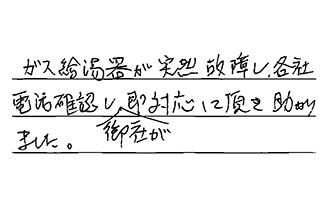 ガス給湯器が突然故障し、各社
電話確認し即対応に頂き助かり
御社が
ました。